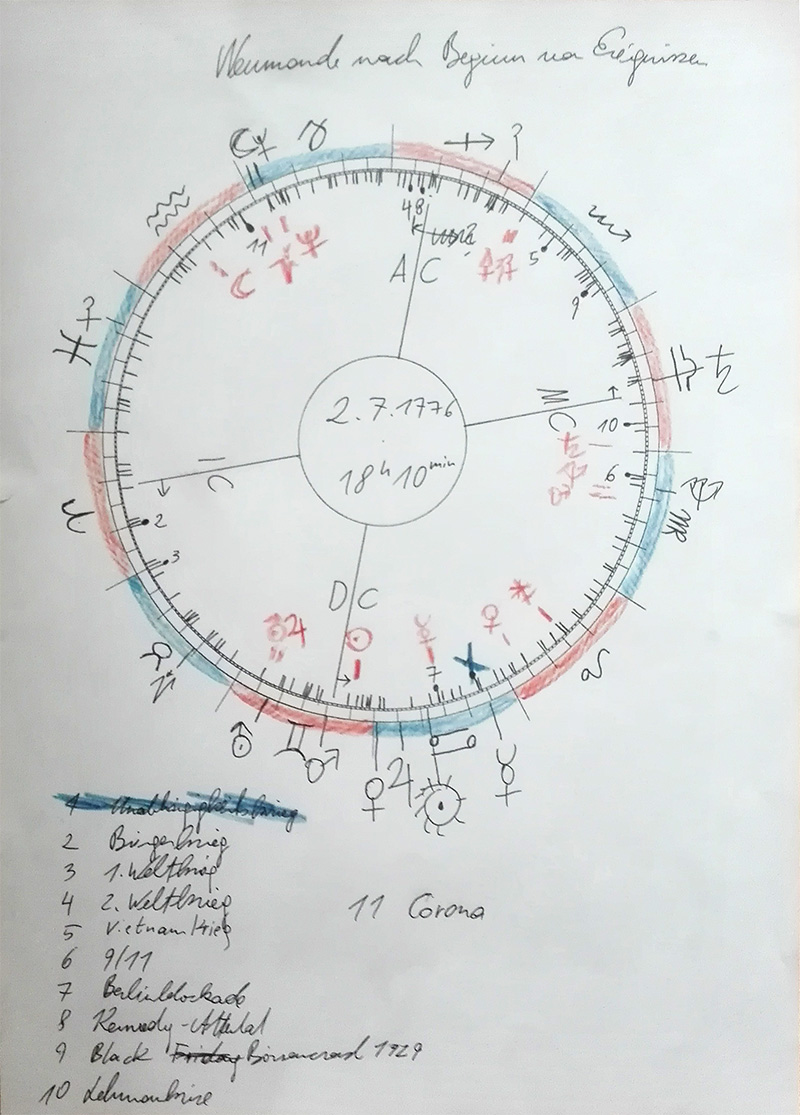 Neumonde nach Beginn von Ereignissen
4 8
11
5
9
A C
M C
10
2.7.1776
18h 10min
I C
6
2
3
D C
7
1 Unabhängigkeitskrieg
2 Bürgerkrieg
3 1. Weltkrieg
4 2. Weltkrieg
5 Vietnam Krieg
6 9/11
7 Berlinblockade
8 Kennedy-Attentat
9 Black Friday Börsencrash 1929
10 Lehmankrise
11 Corona